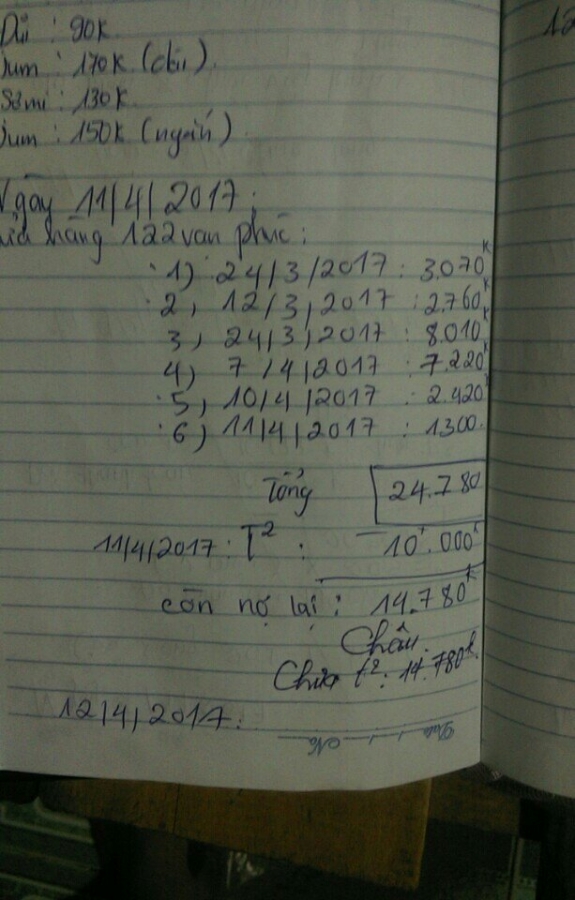 Dài : 90K
Jum : 170K (dài).
Sơmi : 130K.
Jum : 150K (ngắn)
Ngày 11/4/2017:
hàng 122 vạn phúc:
1) 24/3/2017 : 3.070K
2, 12/3, 2017 : 2.760K
3, 24/3, 2017 : 8.010K
4) 7/4/2017 : 7.220K
5, 10/4/2017 : 2.420
6) 11/4/2017 : 1300.
Tổng 24.780
11/4/2017 : T2 : 10.000K
còn nợ lại : 14.780K
Châu.
Chưa t2: 14.780K.
12/4/2017.
Date No
12